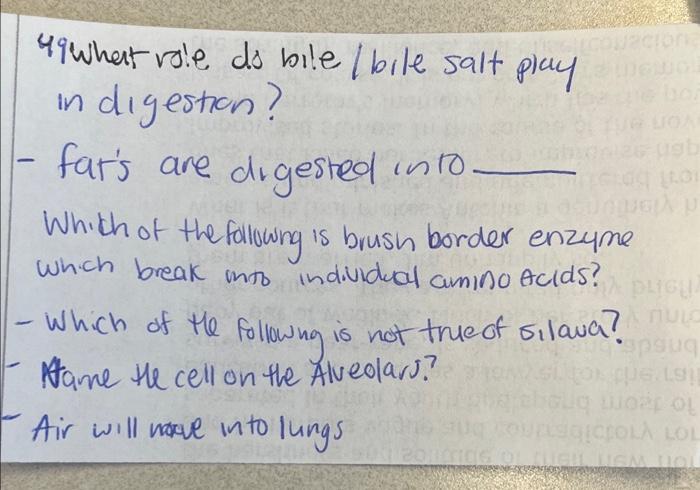 49 What role do bile / bile salt play
in digestion?
- fat's are digested into ____
Which of the following is brush border enzyme
which break into individual amino Acids?
- Which of the following is not true of silava?
- Name the cell on the Alveolars?
- Air will move into lungs